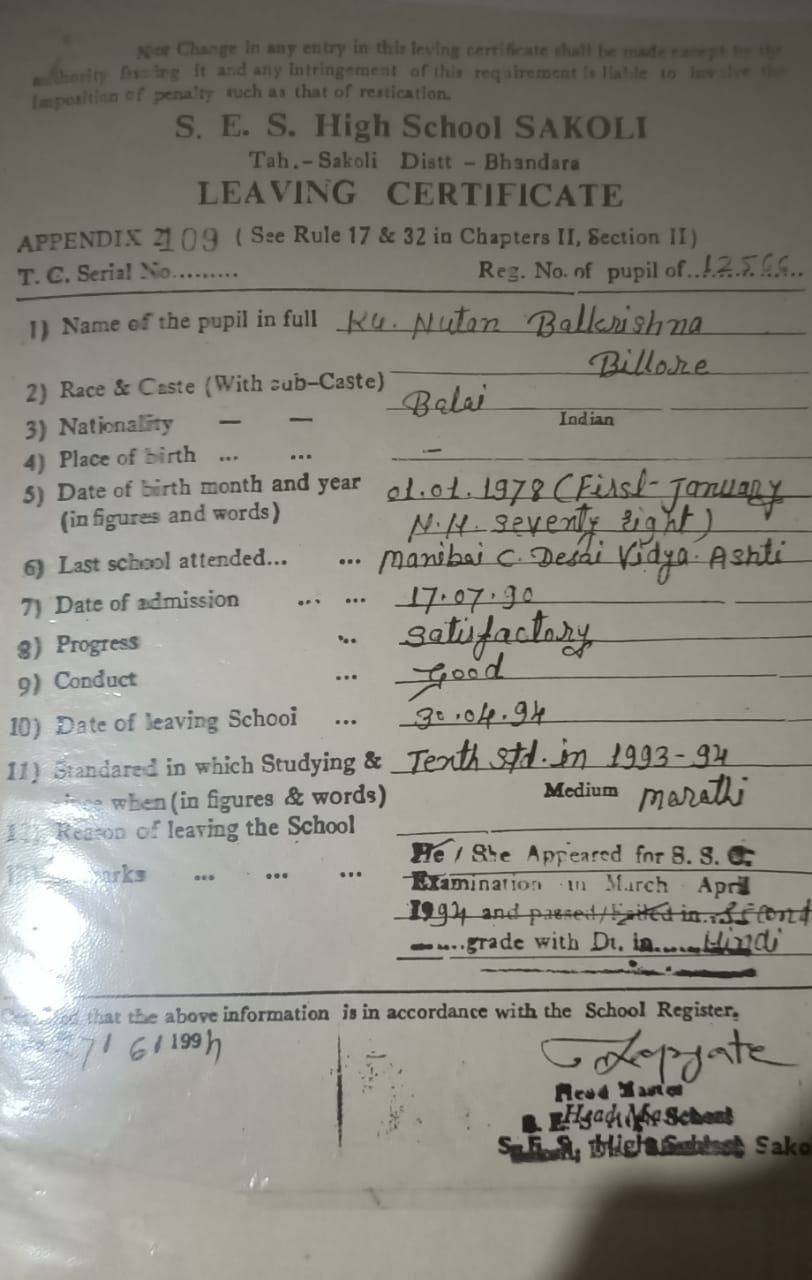 Change in any entry in this leving certificate shall be made except by the
authority issuing it and any intringement of this requirement is liable to involve the
Imposition of penalty such as that of restication.
S. E. S. High School SAKOLI
Tah.- Sakoli Distt - Bhandara
LEAVING CERTIFICATE
APPENDIX 2109 ( See Rule 17 & 32 in Chapters II, Section II)
T. C. Serial No......... Reg. No. of pupil of..12566..
1) Name of the pupil in full Ku. Nutan Balkrishna
Billore
2) Race & Caste (With sub-Caste)
Balai
3) Nationality — — Indian
4) Place of birth ... ... —
5) Date of birth month and year 01.01.1978 (First- January
(in figures and words) N.H. Seventy Eight)
6) Last school attended... ... Manibai C. Desai Vidya. Ashti
7) Date of admission ... ... 17.07.90
8) Progress ... Satisfactory
9) Conduct ... Good
10) Date of leaving School ... 30.04.94
11) Standared in which Studying & Tenth Std. in 1993-94
since when (in figures & words) Medium Marathi
12) Reason of leaving the School
He / She Appeared for S. S. C.
... ... ...
Examination in March April
1994 and passed/Failed in..Second
grade with Dt. in.....Hindi
that the above information is in accordance with the School Register.
27/ 6/ 1994
Head Master
S. E. S. High School, Sako